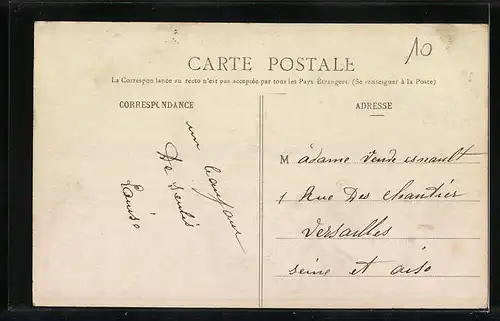 CARTE POSTALE
10
La Correspondance au recto n'est pas acceptée par tous les Pays Étrangers. (Se renseigner à la Poste)
CORRESPONDANCE
ADRESSE
un bonjour
De Senlis
Louise
Madame
1 Rue Des Chantier
Versailles
seine et oise